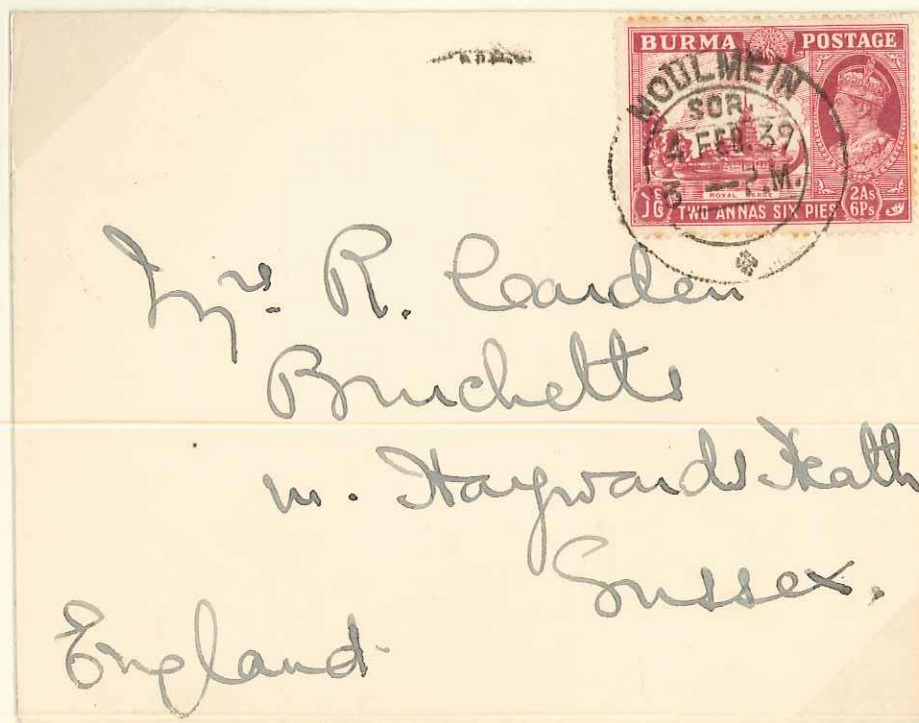 BURMA POSTAGE
MOULMEIN
SOR.
4 FEB. 39
3 P.M.
ROYAL
2As 6Ps
TWO ANNAS SIX PIES
Mrs. R. Carden
Bruchetts
nr. Haywards Heath
Sussex.
England